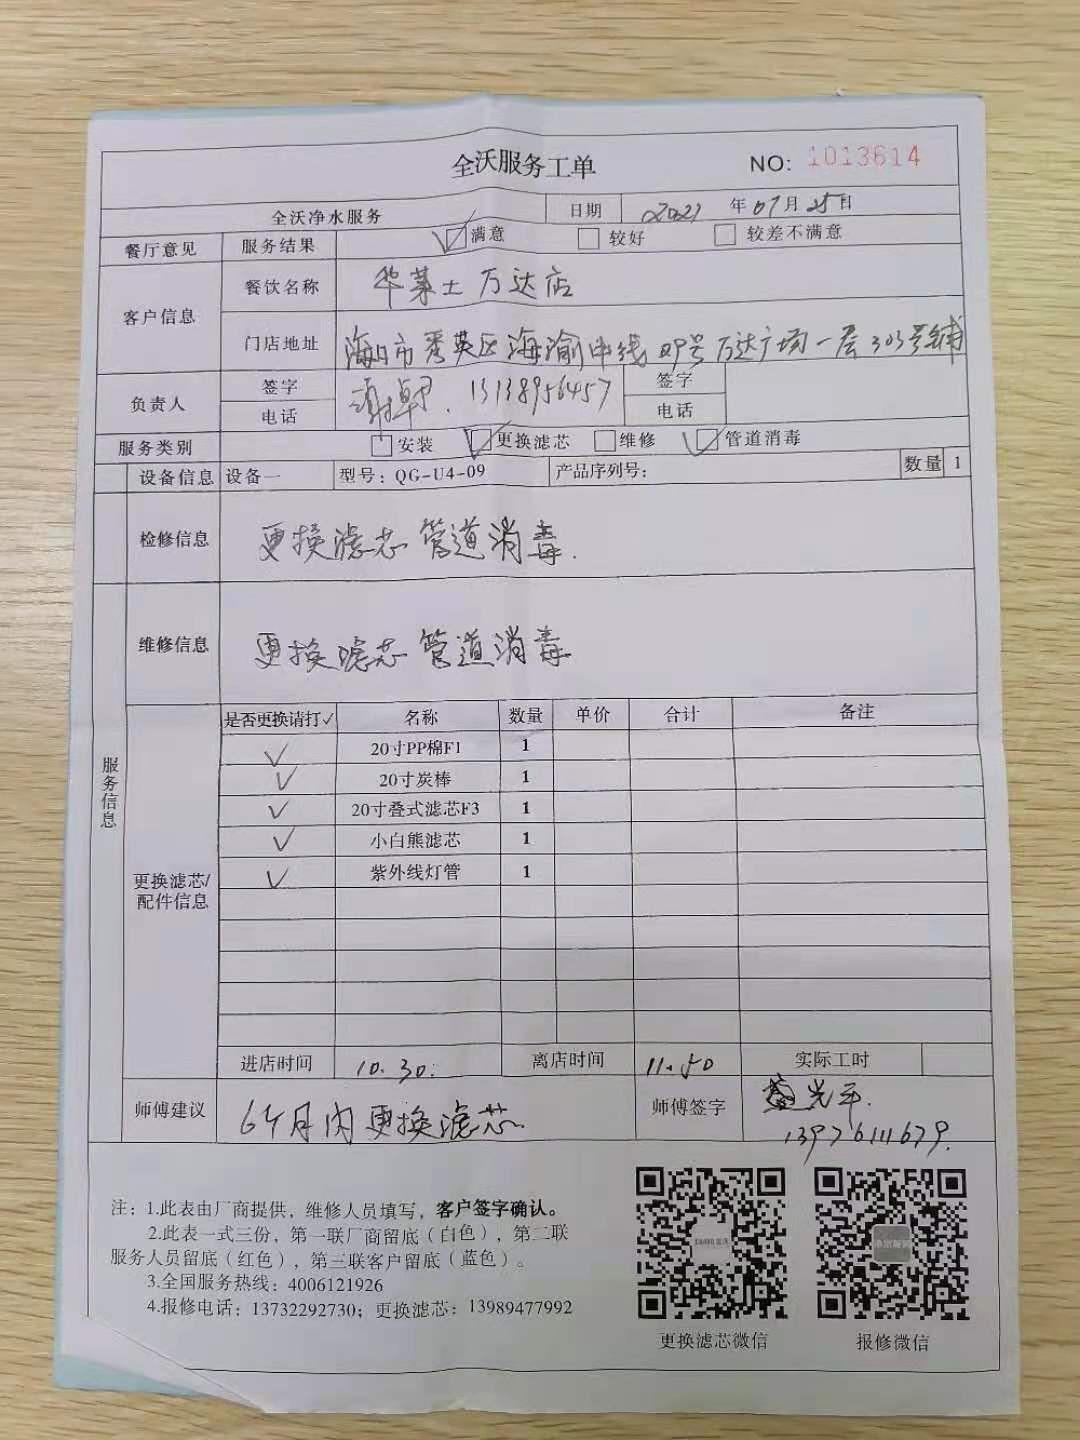 全沃服务工单 NO: 1013614
全沃净水服务 日期 2021 年 07 月 25 日
餐厅意见 服务结果 ☑ 满意 □ 较好 □ 较差不满意
客户信息 餐饮名称 华莱士万达店
门店地址 海口市秀英区海渝中线 号万达广场一层303号铺
负责人 签字 签字
电话 13138956457 电话
服务类别 □ 安装 ☑ 更换滤芯 □ 维修 ☑ 管道消毒
设备信息 设备一 型号: QG-U4-09 产品序列号: 数量 1
检修信息 更换滤芯 管道消毒.
维修信息 更换滤芯 管道消毒
服务信息
更换滤芯/配件信息
是否更换请打✓ 名称 数量 单价 合计 备注
✓ 20寸PP棉F1 1
✓ 20寸炭棒 1
✓ 20寸叠式滤芯F3 1
✓ 小白熊滤芯 1
✓ 紫外线灯管 1
进店时间 10.30. 离店时间 11.50 实际工时
师傅建议 6个月内更换滤芯 师傅签字 光平.
13976111679.
注: 1.此表由厂商提供，维修人员填写，客户签字确认。
2.此表一式三份，第一联厂商留底（白色），第二联
服务人员留底（红色），第三联客户留底（蓝色）。
3.全国服务热线: 4006121926
4.报修电话: 13732292730; 更换滤芯: 13989477992
更换滤芯微信 报修微信